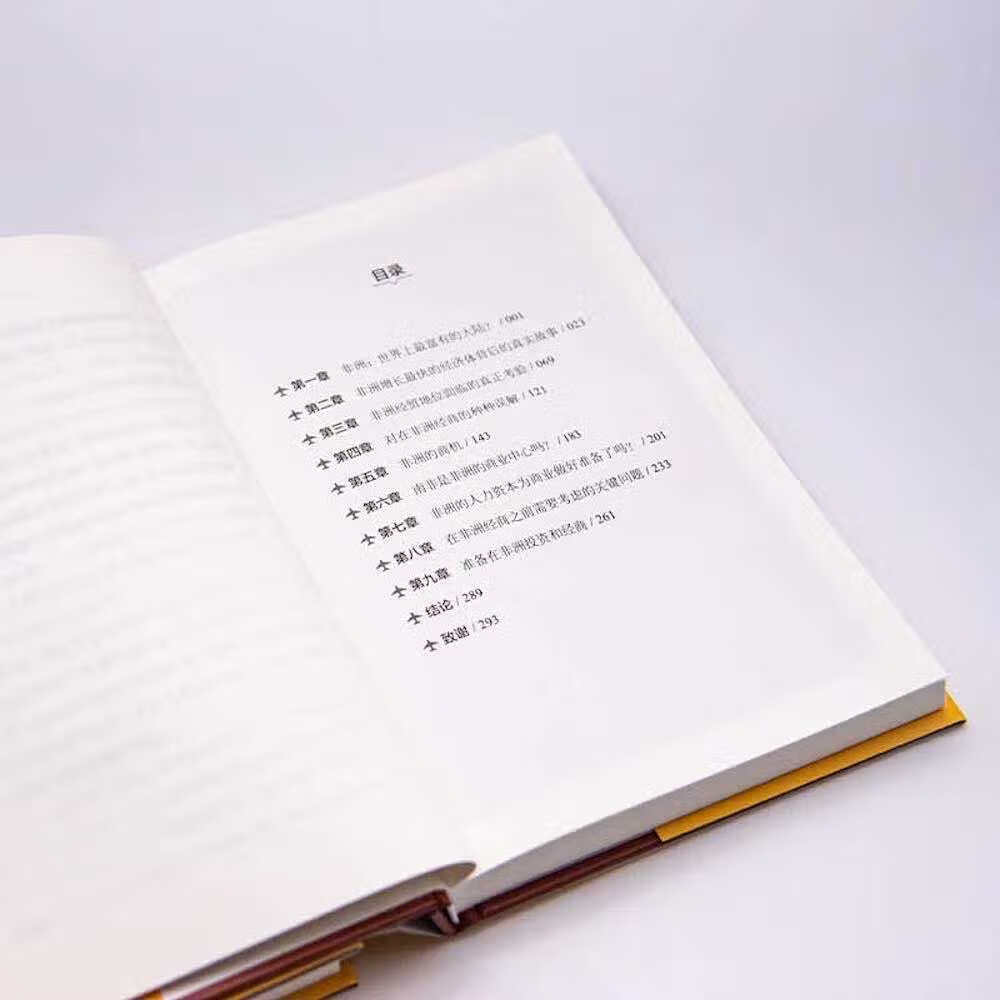 目录
第一章 非洲：世界上最富有的大陆？ / 001
第二章 非洲增长最快的经济体背后的真实故事 / 023
第三章 非洲经贸地位面临的真正考验 / 069
第四章 对在非洲经商的种种误解 / 121
第五章 非洲的商机 / 143
第六章 南非是非洲的商业中心吗？ / 183
第七章 非洲的人力资本为商业做好准备了吗？ / 201
第八章 在非洲经商之前需要考虑的关键问题 / 233
第九章 准备在非洲投资和经商 / 261
结论 / 289
致谢 / 293